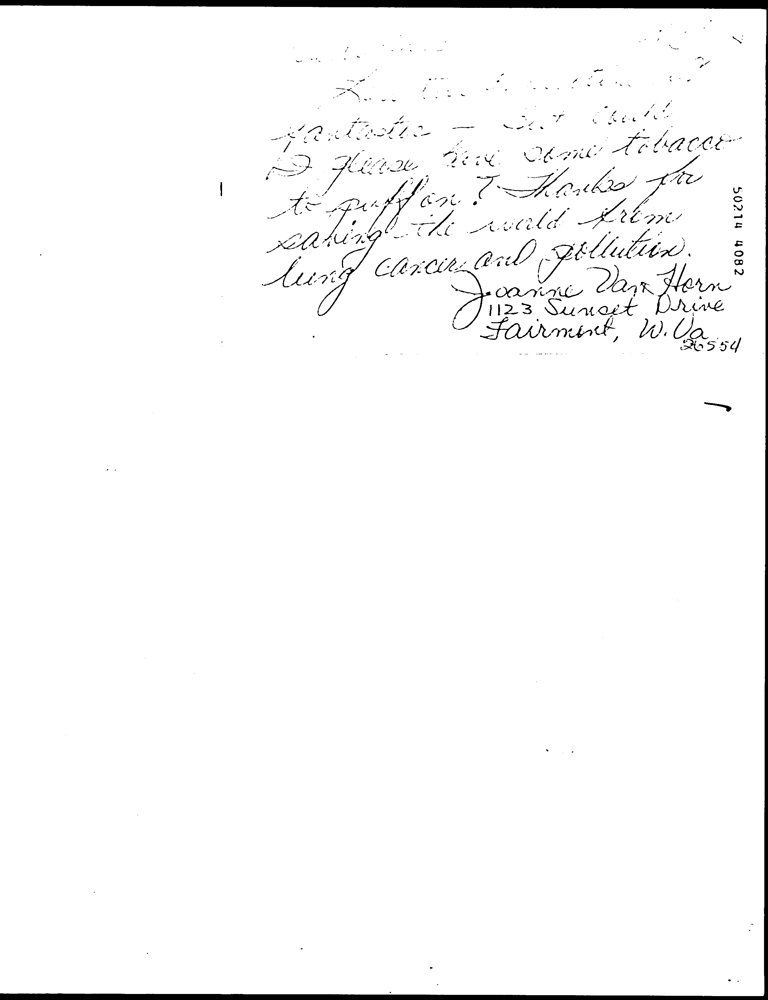 fantastic — but could
I please have some tobacco
to puff on? Thanks for
saving the world from
lung cancer and pollution.
Joanne Van Horn
1123 Sunset Drive
Fairmont, W. Va.
26554
50214 4082